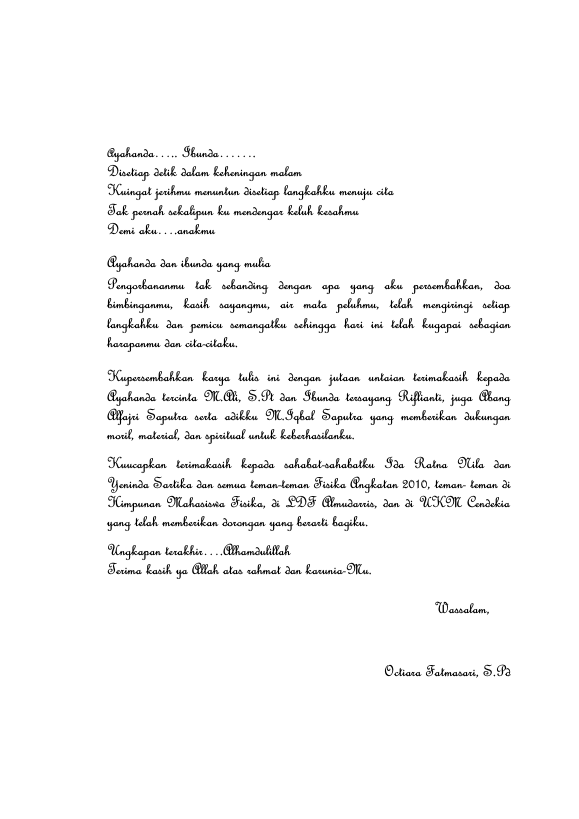 Ayahanda….. Ibunda…….
Disetiap detik dalam keheningan malam
Kuingat jerihmu menuntun disetiap langkahku menuju cita
Tak pernah sekalipun ku mendengar keluh kesahmu
Demi aku….anakmu
Ayahanda dan ibunda yang mulia
Pengorbananmu tak sebanding dengan apa yang aku persembahkan, doa
bimbinganmu, kasih sayangmu, air mata peluhmu, telah mengiringi setiap
langkahku dan pemicu semangatku sehingga hari ini telah kugapai sebagian
harapanmu dan cita-citaku.
Kupersembahkan karya tulis ini dengan jutaan untaian terimakasih kepada
Ayahanda tercinta M.Ali, S.Pt dan Ibunda tersayang Riflianti, juga Abang
Alfajri Saputra serta adikku M.Iqbal Saputra yang memberikan dukungan
moril, material, dan spiritual untuk keberhasilanku.
Kuucapkan terimakasih kepada sahabat-sahabatku Ida Ratna Nila dan
Yeninda Sartika dan semua teman-teman Fisika Angkatan 2010, teman- teman di
Himpunan Mahasiswa Fisika, di LDF Almudarris, dan di UKM Cendekia
yang telah memberikan dorongan yang berarti bagiku.
Ungkapan terakhir….Alhamdulillah
Terima kasih ya Allah atas rahmat dan karunia-Mu.
Wassalam,
Octiara Fatmasari, S.Pd